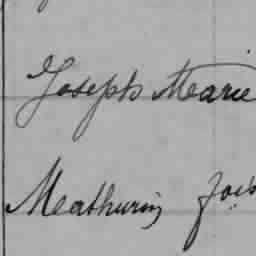 Joseph Marie
Mathurin